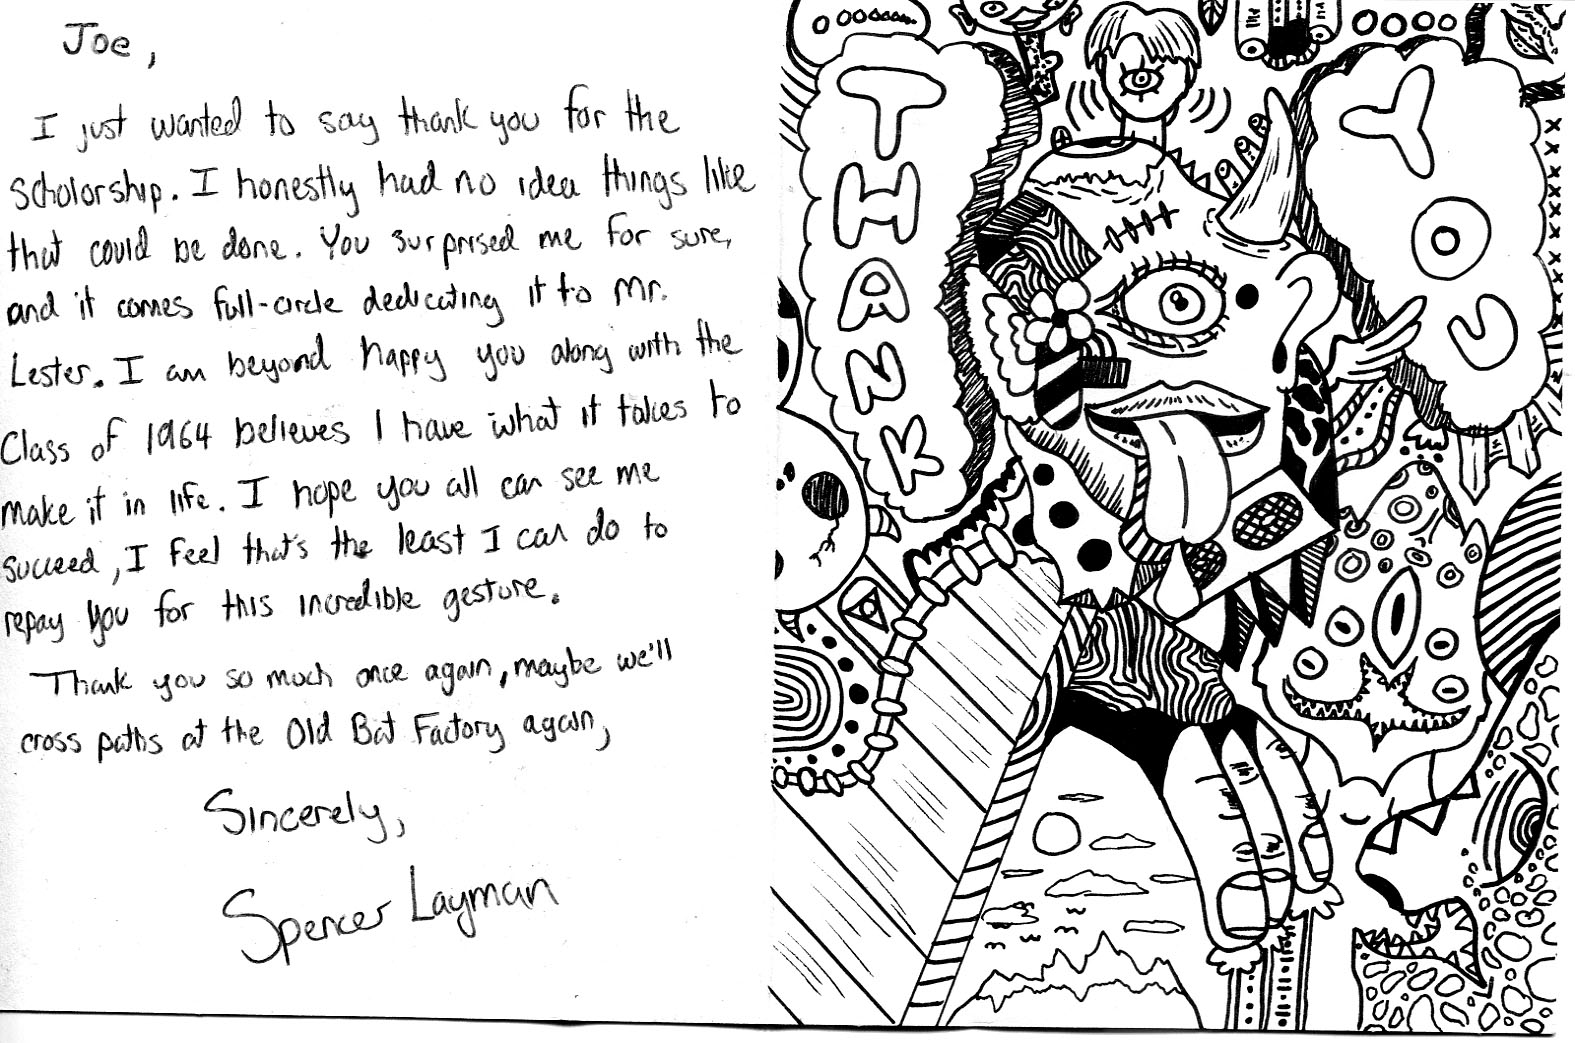 Joe,
I just wanted to say thank you for the
Scholorship. I honestly had no idea things like
that could be done. You surprised me for sure,
and it comes full-circle dedicating it to Mr.
Lester. I am beyond happy you along with the
Class of 1964 believes I have what it takes to
make it in life. I hope you all can see me
succeed, I feel that's the least I can do to
repay you for this incredible gesture.
Thank you so much once again, maybe we'll
cross paths at the Old Bat Factory again,
Sincerely,
Spencer Layman
THANK
YOU